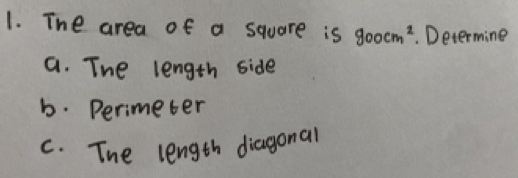 1. The area of a square is 900cm². Determine
a. The length side
b. Perimeter
c. The length diagonal